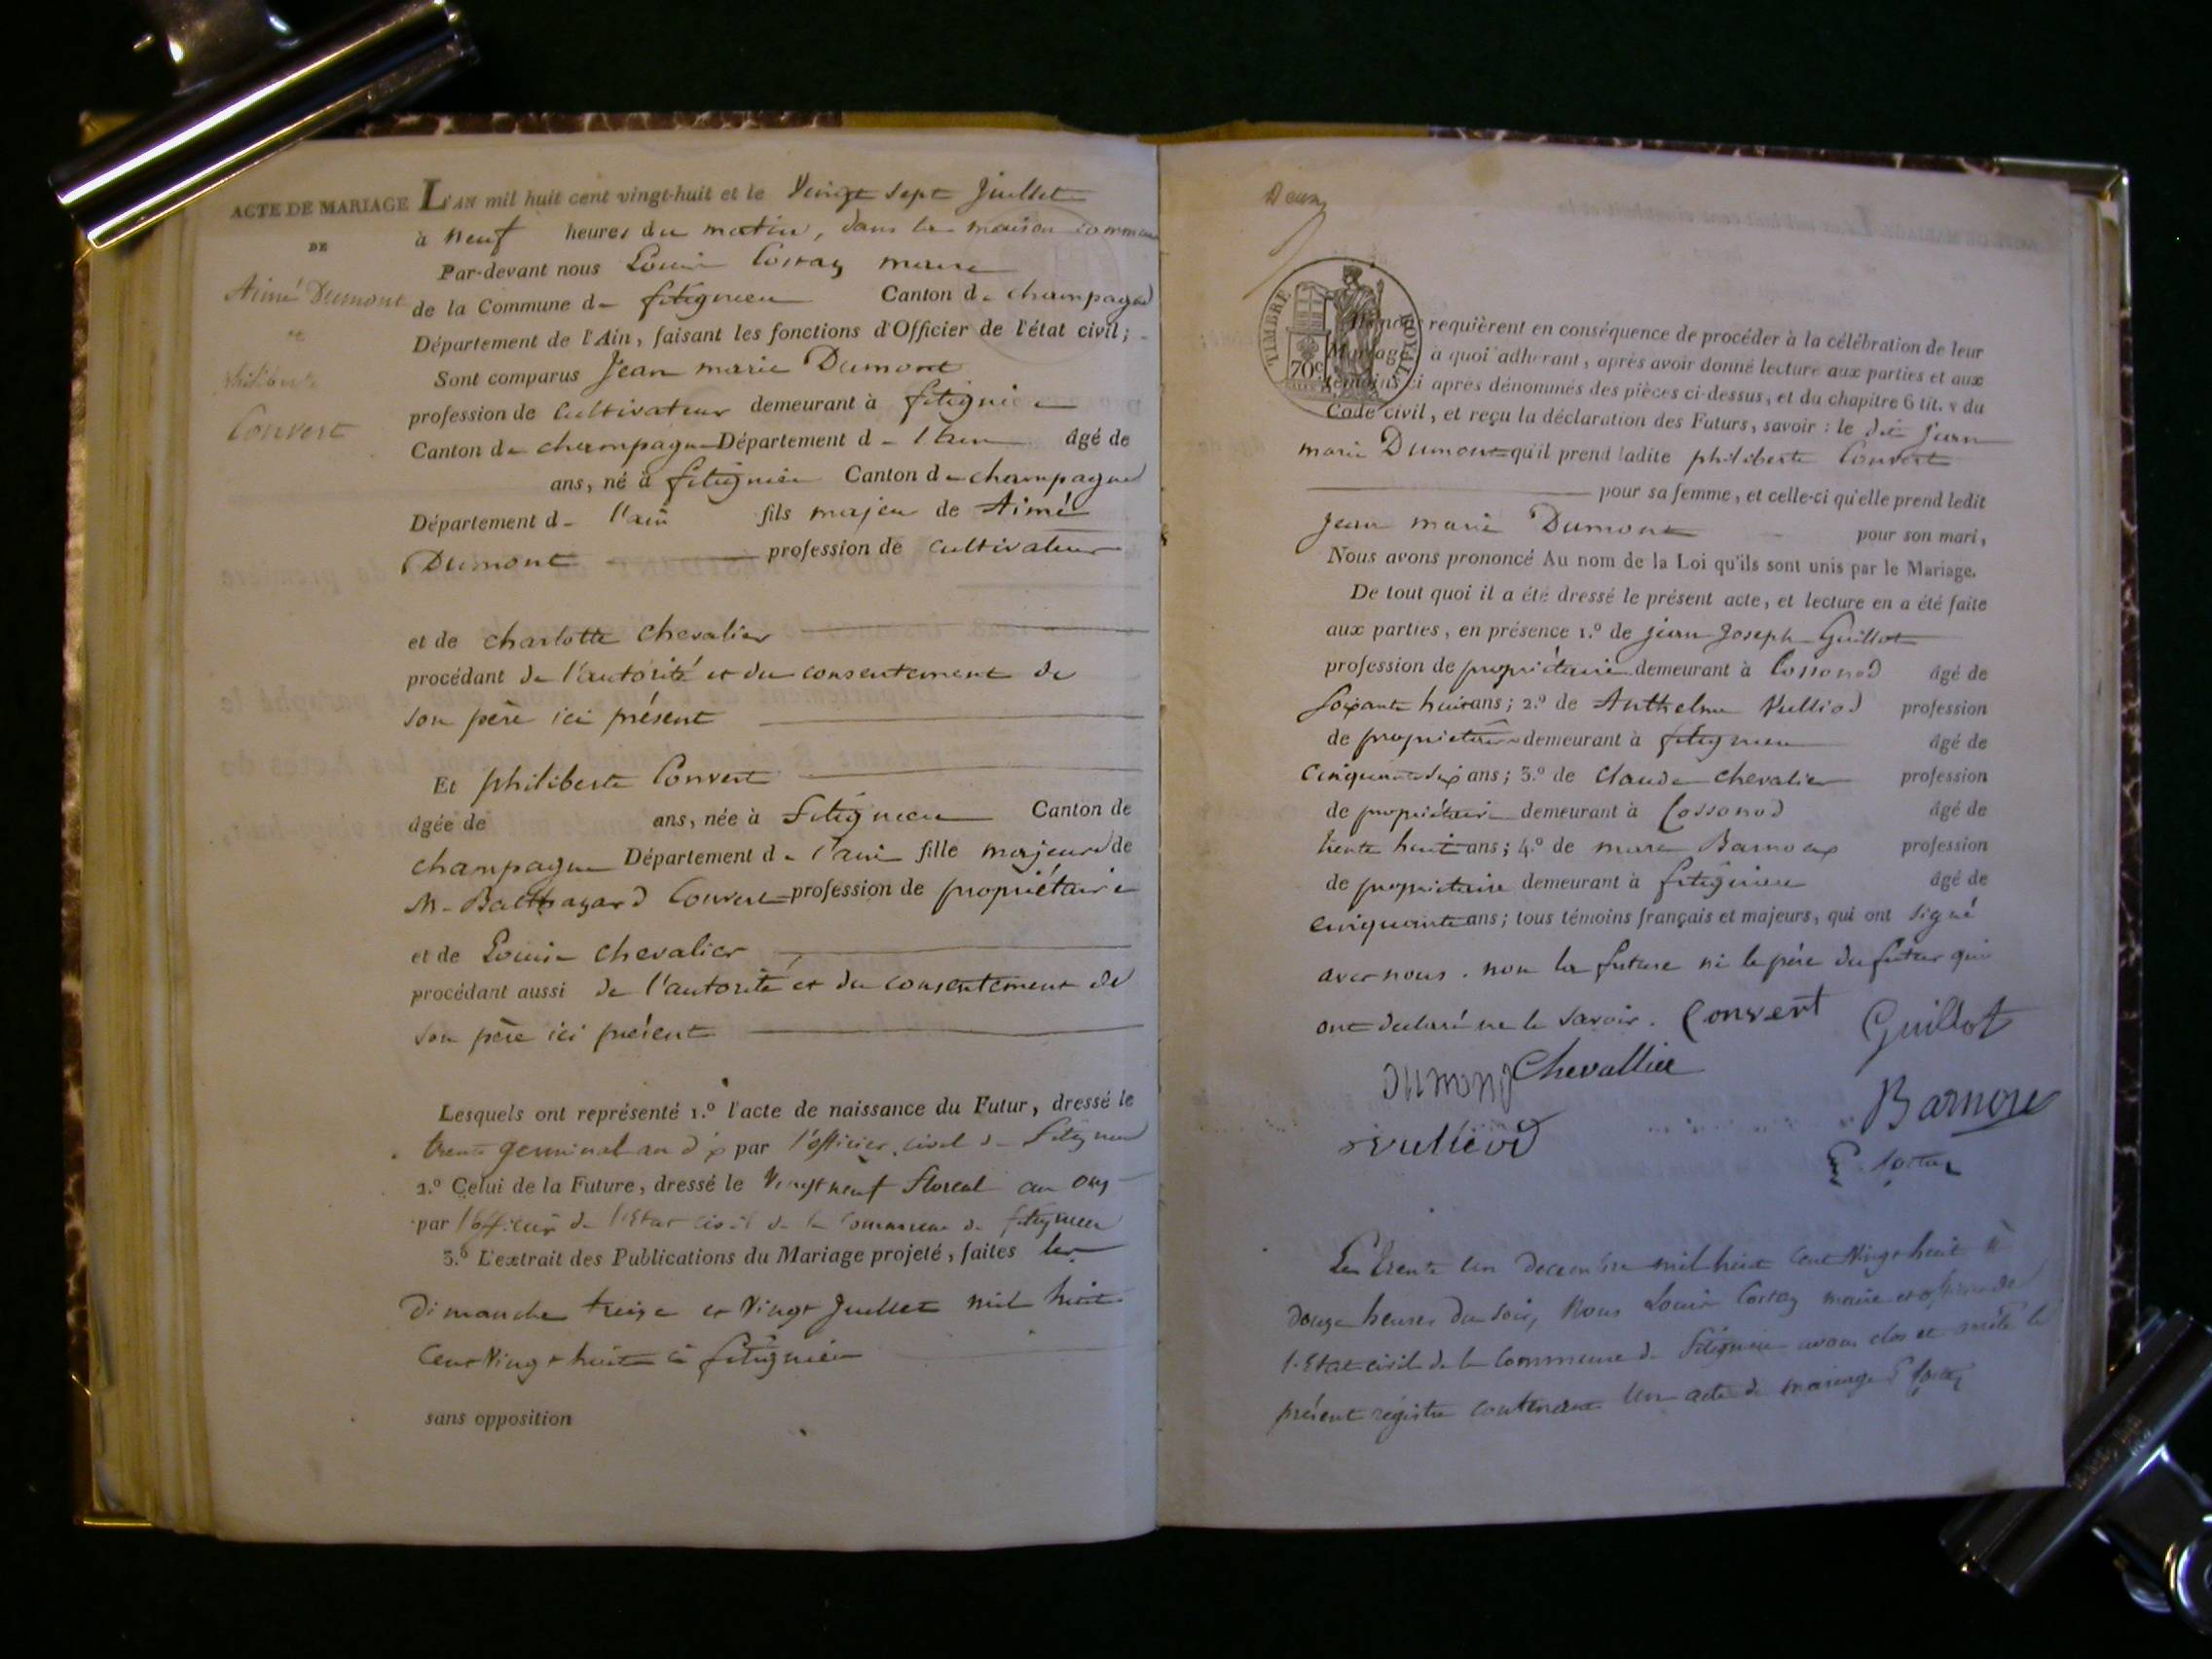 ACTE DE MARIAGE
DE
Aimé Dumont
et
philiberte
Convert
L'AN mil huit cent vingt-huit et le Vingt sept Juillet
à neuf heures du matin, dans la maison commune
Par-devant nous Louis maire
de la Commune de fitignieu Canton de champagne
Département de l'Ain, faisant les fonctions d'Officier de l'état civil;
Sont comparus Jean marie Dumont
profession de Cultivateur demeurant à fitignieu
Canton de champagne Département de l'ain âgé de
ans, né à fitignieu Canton de champagne
Département de l'ain fils majeur de Aimé
Dumont profession de cultivateur
et de charlotte chevalier
procédant de l'autorité et du consentement de
son père ici présent
Et philiberte Convert
âgée de ans, née à fitignieu Canton de
champagne Département de l'ain fille majeure de
M. Balthazard Convert profession de propriétaire
et de Louise chevalier
procédant aussi de l'autorité et du consentement de
son père ici présent
Lesquels ont représenté 1.° l'acte de naissance du Futur, dressé le
trente germinal an dix par l'officier civil de fitignieu
2.° Celui de la Future, dressé le Vingt neuf floreal an onz
par l'officier de l'Etat civil de la commune de fitignieu
3.° L'extrait des Publications du Mariage projeté, faites les
Dimanche treize et Vingt Juillet mil huit
Cent Vingt huit à fitignieu
sans opposition
Deux
TIMBRE ROYAL
70c
requièrent en conséquence de procéder à la célébration de leur
Mariage, à quoi adhérant, après avoir donné lecture aux parties et aux
témoins ci après dénommés des pièces ci-dessus, et du chapitre 6 tit. v du
Code civil, et reçu la déclaration des Futurs, savoir : le dit Jean
marie Dumont qu'il prend ladite philiberte Convert
pour sa femme, et celle-ci qu'elle prend ledit
Jean marie Dumont pour son mari,
Nous avons prononcé Au nom de la Loi qu'ils sont unis par le Mariage.
De tout quoi il a été dressé le présent acte, et lecture en a été faite
aux parties, en présence 1.° de jean Joseph Guillot
profession de propriétaire demeurant à Cossonod âgé de
Soixante huit ans; 2.° de Anthelme Vulliod profession
de propriétaire demeurant à fitignieu âgé de
Cinquante dix ans; 3.° de Claude chevalier profession
de propriétaire demeurant à Cossonod âgé de
trente huit ans; 4.° de marc Barnoux profession
de propriétaire demeurant à fitignieu âgé de
cinquante ans; tous témoins français et majeurs, qui ont signé
avec nous. non la future ni le père du futur qui
ont declaré ne le savoir. Convert Guillot
Dumont Chevallier
Vulliod
Le trente un decembre mil huit Cent Vingt huit à
Douze heures du soir, Nous Louis maire et officier de
l'Etat civil de la Commune de fitignieu avons clos et arrêté le
présent registre contenant Un acte de mariage